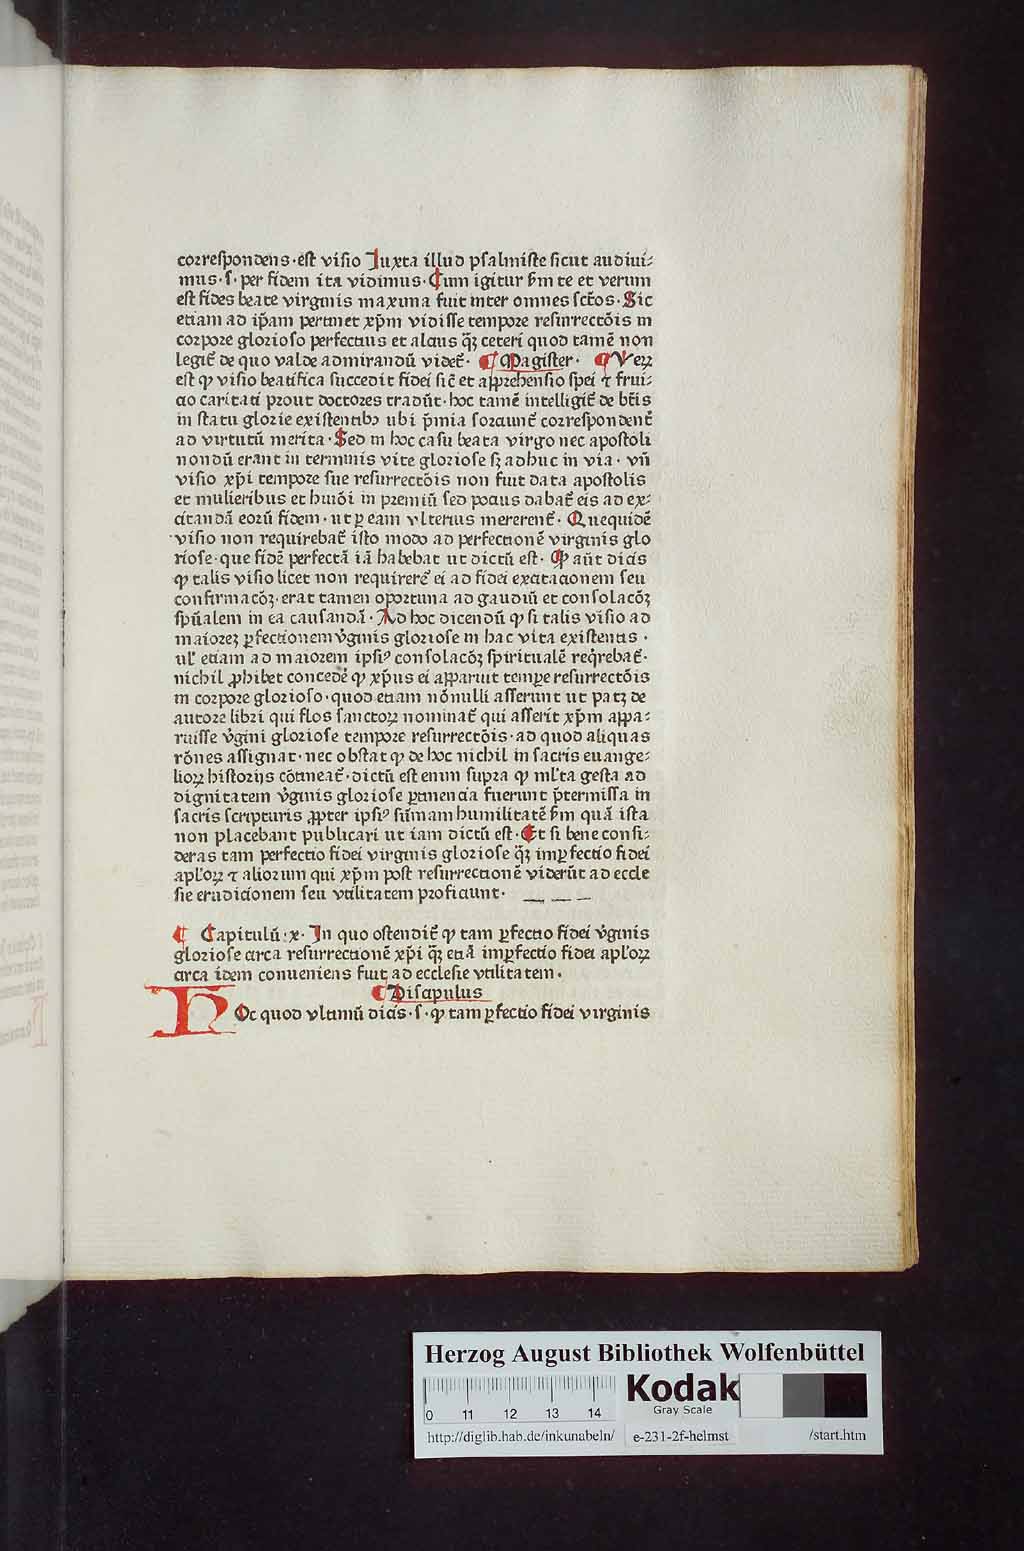 correspondens·est visio Juxta illud psalmiste sicut audiui-
mus·s·per fidem ita vidimus·Cum igitur ẜm te et verum
est fides beate virginis maxima fuit inter omnes sctōs·Sic
etiam ad ip̄am pertinet xp̄m vidisse tempore resurrectōis in
corpore glorioso perfectius et alcius qȝ̄ ceteri quod tamē non
legit᷑ de quo valde admirandū videt᷑· ¶ Magister· ¶ Veꝝ
est ꝙ visio beatifica succedit fidei sic̄ et apprehensio spei ⁊ frui-
cio caritati prout doctores tradūt·hoc tamē intelligit᷑ de bt̄is
in statu glorie existentibꝰ ubi p̄mia sorciunt᷑ correspondent᷑
ad virtutū merita·Sed in hoc casu beata virgo nec apostoli
nondū erant in terminis vite gloriose sȝ adhuc in via·vn̄
visio xp̄i tempore sue resurrectōis non fuit data apostolis
et mulieribus et huiōi in premiū sed pocius dabat᷑ eis ad ex-
citandā eorū fidem·ut ꝑ eam vlterius mererent᷑·Quequidē
visio non requirebat᷑ isto modo ad perfectionē virginis glo
riose·que fidē perfectā iā habebat ut dictū est·Ꝙ aūt dicis
ꝙ talis visio licet non requireret᷑ ei ad fidei excitacionem seu
confirmacōȝ·erat tamen oportuna ad gaudiū et consolacōȝ
spūalem in ea causandā·Ad hoc dicendū ꝙ si talis visio ad
maiorez ꝑfectionem v̄ginis gloriose in hac vita existentis·
ul' etiam ad maiorem ipsiꝰ consolacōȝ spiritualē reqͥrebat᷑·
nichil ꝓhibet concedē ꝙ xp̄us ei apparuit tempore resurrectōis
in corpore glorioso·quod etiam nōnulli asserunt ut patȝ de
autore libri qui flos sanctoꝝ nominat᷑ qui asserit xp̄m appa-
ruisse v̄gini gloriose tempore resurrectōis·ad quod aliquas
rōnes assignat·nec obstat ꝙ de hoc nichil in sacris euange-
lioꝝ historijs cōtineat᷑·dictū est enim supra ꝙ ml'ta gesta ad
dignitatem v̄ginis gloriose ꝑtinencia fuerunt p̄termissa in
sacris scripturis ꝓpter ipsiꝰ sūmam humilitatē ẜm quā ista
non placebant publicari ut iam dictū est·Et si bene consi-
deras tam perfectio fidei virginis gloriose qȝ̄ imꝑfectio fidei
apl'oꝝ ⁊ aliorum qui xp̄m post resurrectionē viderūt ad eccle
sie erudicionem seu vtilitatem proficiunt·
¶ Capitulū·x·In quo ostendit᷑ ꝙ tam ꝑfectio fidei v̄ginis
gloriose circa resurrectionē xp̄i qȝ̄ etiā imꝑfectio fidei apl'oꝝ
circa idem conueniens fuit ad ecclesie vtilitatem.
¶ Discipulus
Hoc quod vltimū dicis·s·ꝙ tam ꝑfectio fidei virginis
Herzog August Bibliothek Wolfenbüttel
0 11 12 13 14
Kodak
Gray Scale
http://diglib.hab.de/inkunabeln/ e-231-2f-helmst /start.htm